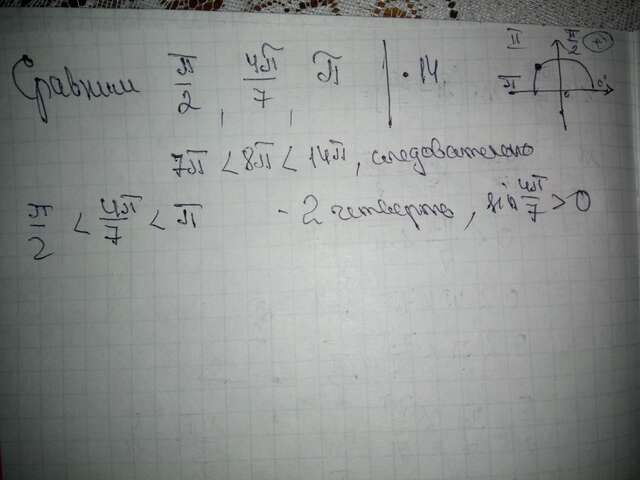 Сравним π/2, 4π/7, π | · 14
II π/2 (+) π 0 0°
7π < 8π < 14π, следовательно
π/2 < 4π/7 < π - 2 четверть, sin 4π/7 > 0